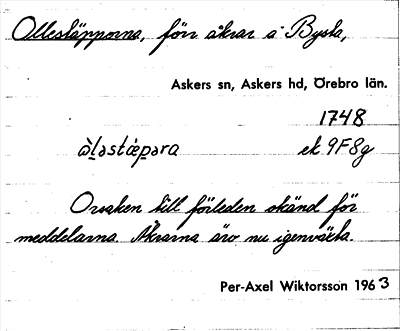 Ollestäpporna, förr åkrar å Bysta,
Askers sn, Askers hd, Örebro län.
1748
ek 9F8g
Orsaken till förleden okänd för
meddelarna. Åkrarna äro nu igenväxta.
Per-Axel Wiktorsson 1963